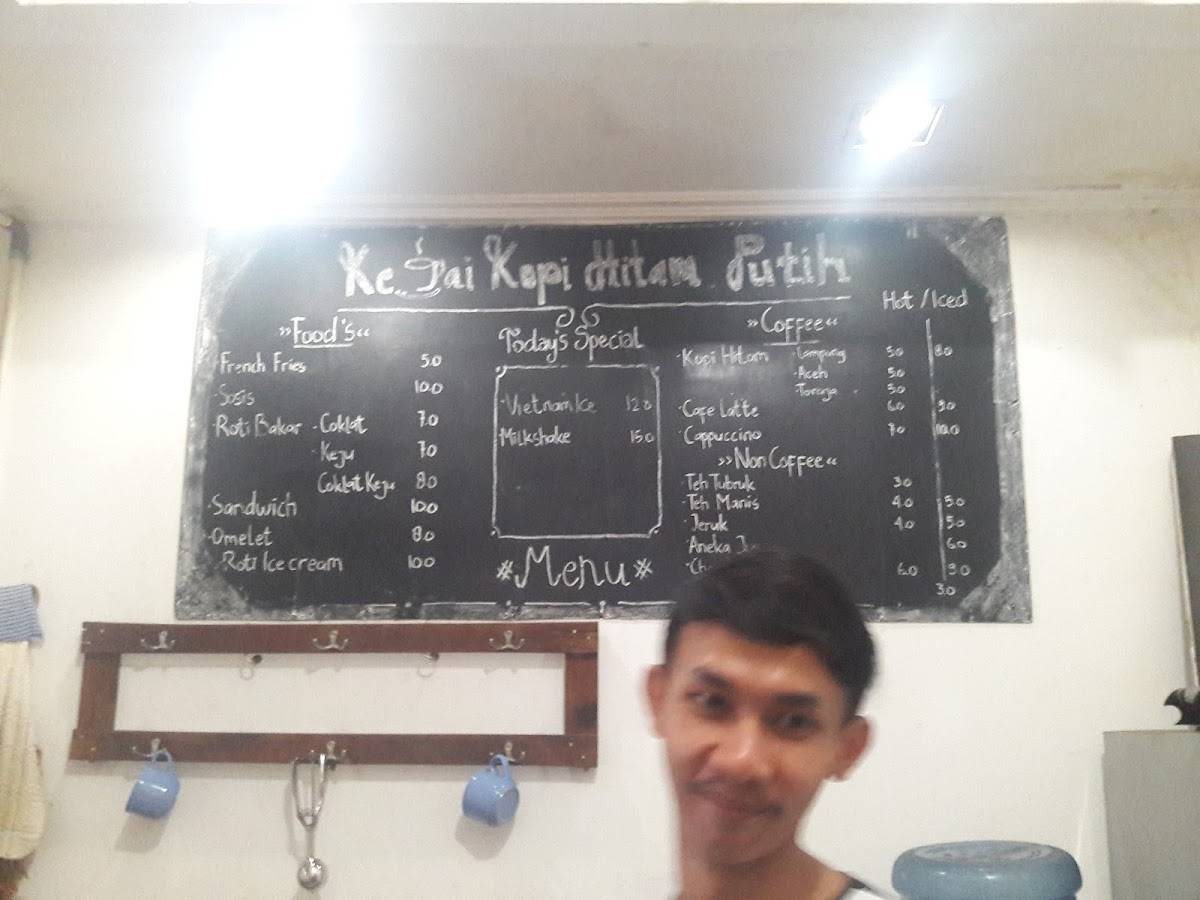 Kedai Kopi Hitam Putih
Hot / Iced
»Food's«
French Fries 5.0
Sosis 10.0
Roti Bakar - Coklat 7.0
Keju 7.0
Coklat Keju 8.0
Sandwich 10.0
Omelet 8.0
Roti Ice cream 10.0
Today's Special
Vietnam Ice 12.0
Milkshake 15.0
#Menu#
»Coffee«
Kopi Hitam Lampung 5.0 8.0
Aceh 5.0
Toraja 5.0
Cafe Latte 6.0 9.0
Cappuccino 7.0 10.0
»Non Coffee«
Teh Tubruk 3.0
Teh Manis 4.0 5.0
Jeruk 4.0 5.0
Aneka 6.0
6.0 9.0
3.0